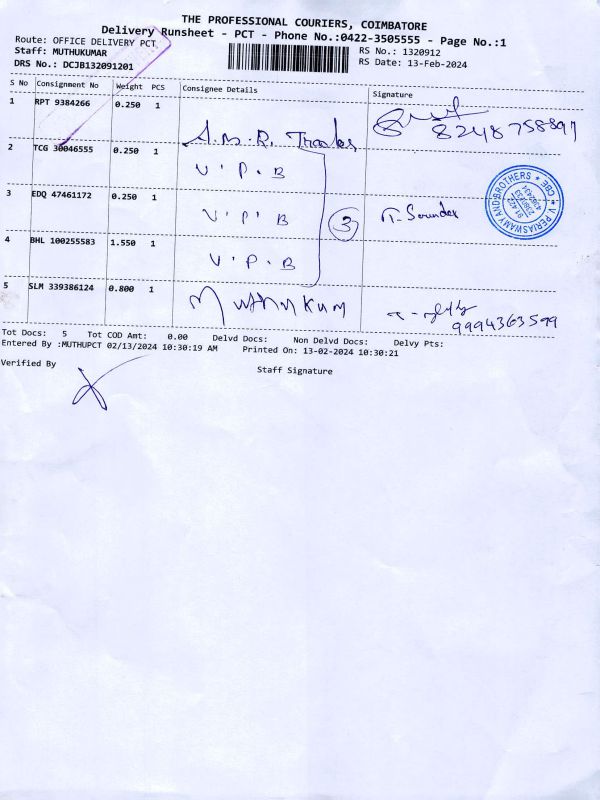 THE PROFESSIONAL COURIERS, COIMBATORE
Delivery Runsheet - PCT - Phone No.:0422-3505555 - Page No.:1
Route: OFFICE DELIVERY PCT
Staff: MUTHUKUMAR
RS No.: 1320912
DRS No.: DCJB132091201
RS Date: 13-Feb-2024
S No Consignment No Weight PCS Consignee Details Signature
1 RPT 9384266 0.250 1 A.M.R. Traders 8248758897
2 TCG 30046555 0.250 1 V.P.B
3 EDQ 47461172 0.250 1 V.P.B 3 T. Sounder
V PERIASWAMY AND BROTHERS * CBE *
4 BHL 100255583 1.550 1 V.P.B
5 SLM 339386124 0.800 1 Muthukum 9994363599
Tot Docs: 5 Tot COD Amt: 0.00 Delvd Docs: Non Delvd Docs: Delvy Pts:
Entered By :MUTHUPCT 02/13/2024 10:30:19 AM Printed On: 13-02-2024 10:30:21
Verified By
Staff Signature